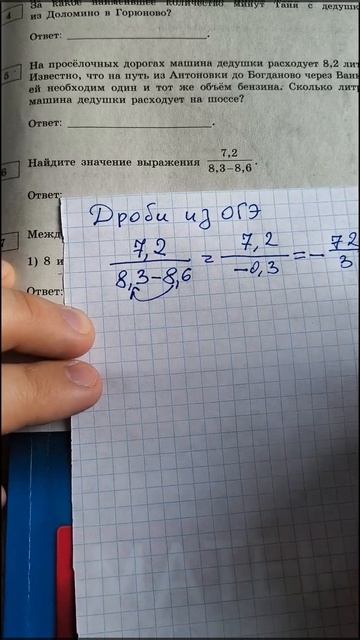 4 За какое наименьшее количество минут Таня с дедушк
из Доломино в Горюново?
Ответ:
5 На просёлочных дорогах машина дедушки расходует 8,2 лит
Известно, что на путь из Антоновки до Богданово через Ван
ей необходим один и тот же объём бензина. Сколько литр
машина дедушки расходует на шоссе?
Ответ:
6 Найдите значение выражения 7,2 / 8,3−8,6 .
Ответ:
7 Межд
1) 8 и
Ответ:
Дроби из ОГЭ
7,2 / 8,3−8,6 = 7,2 / −0,3 = − 72 / 3